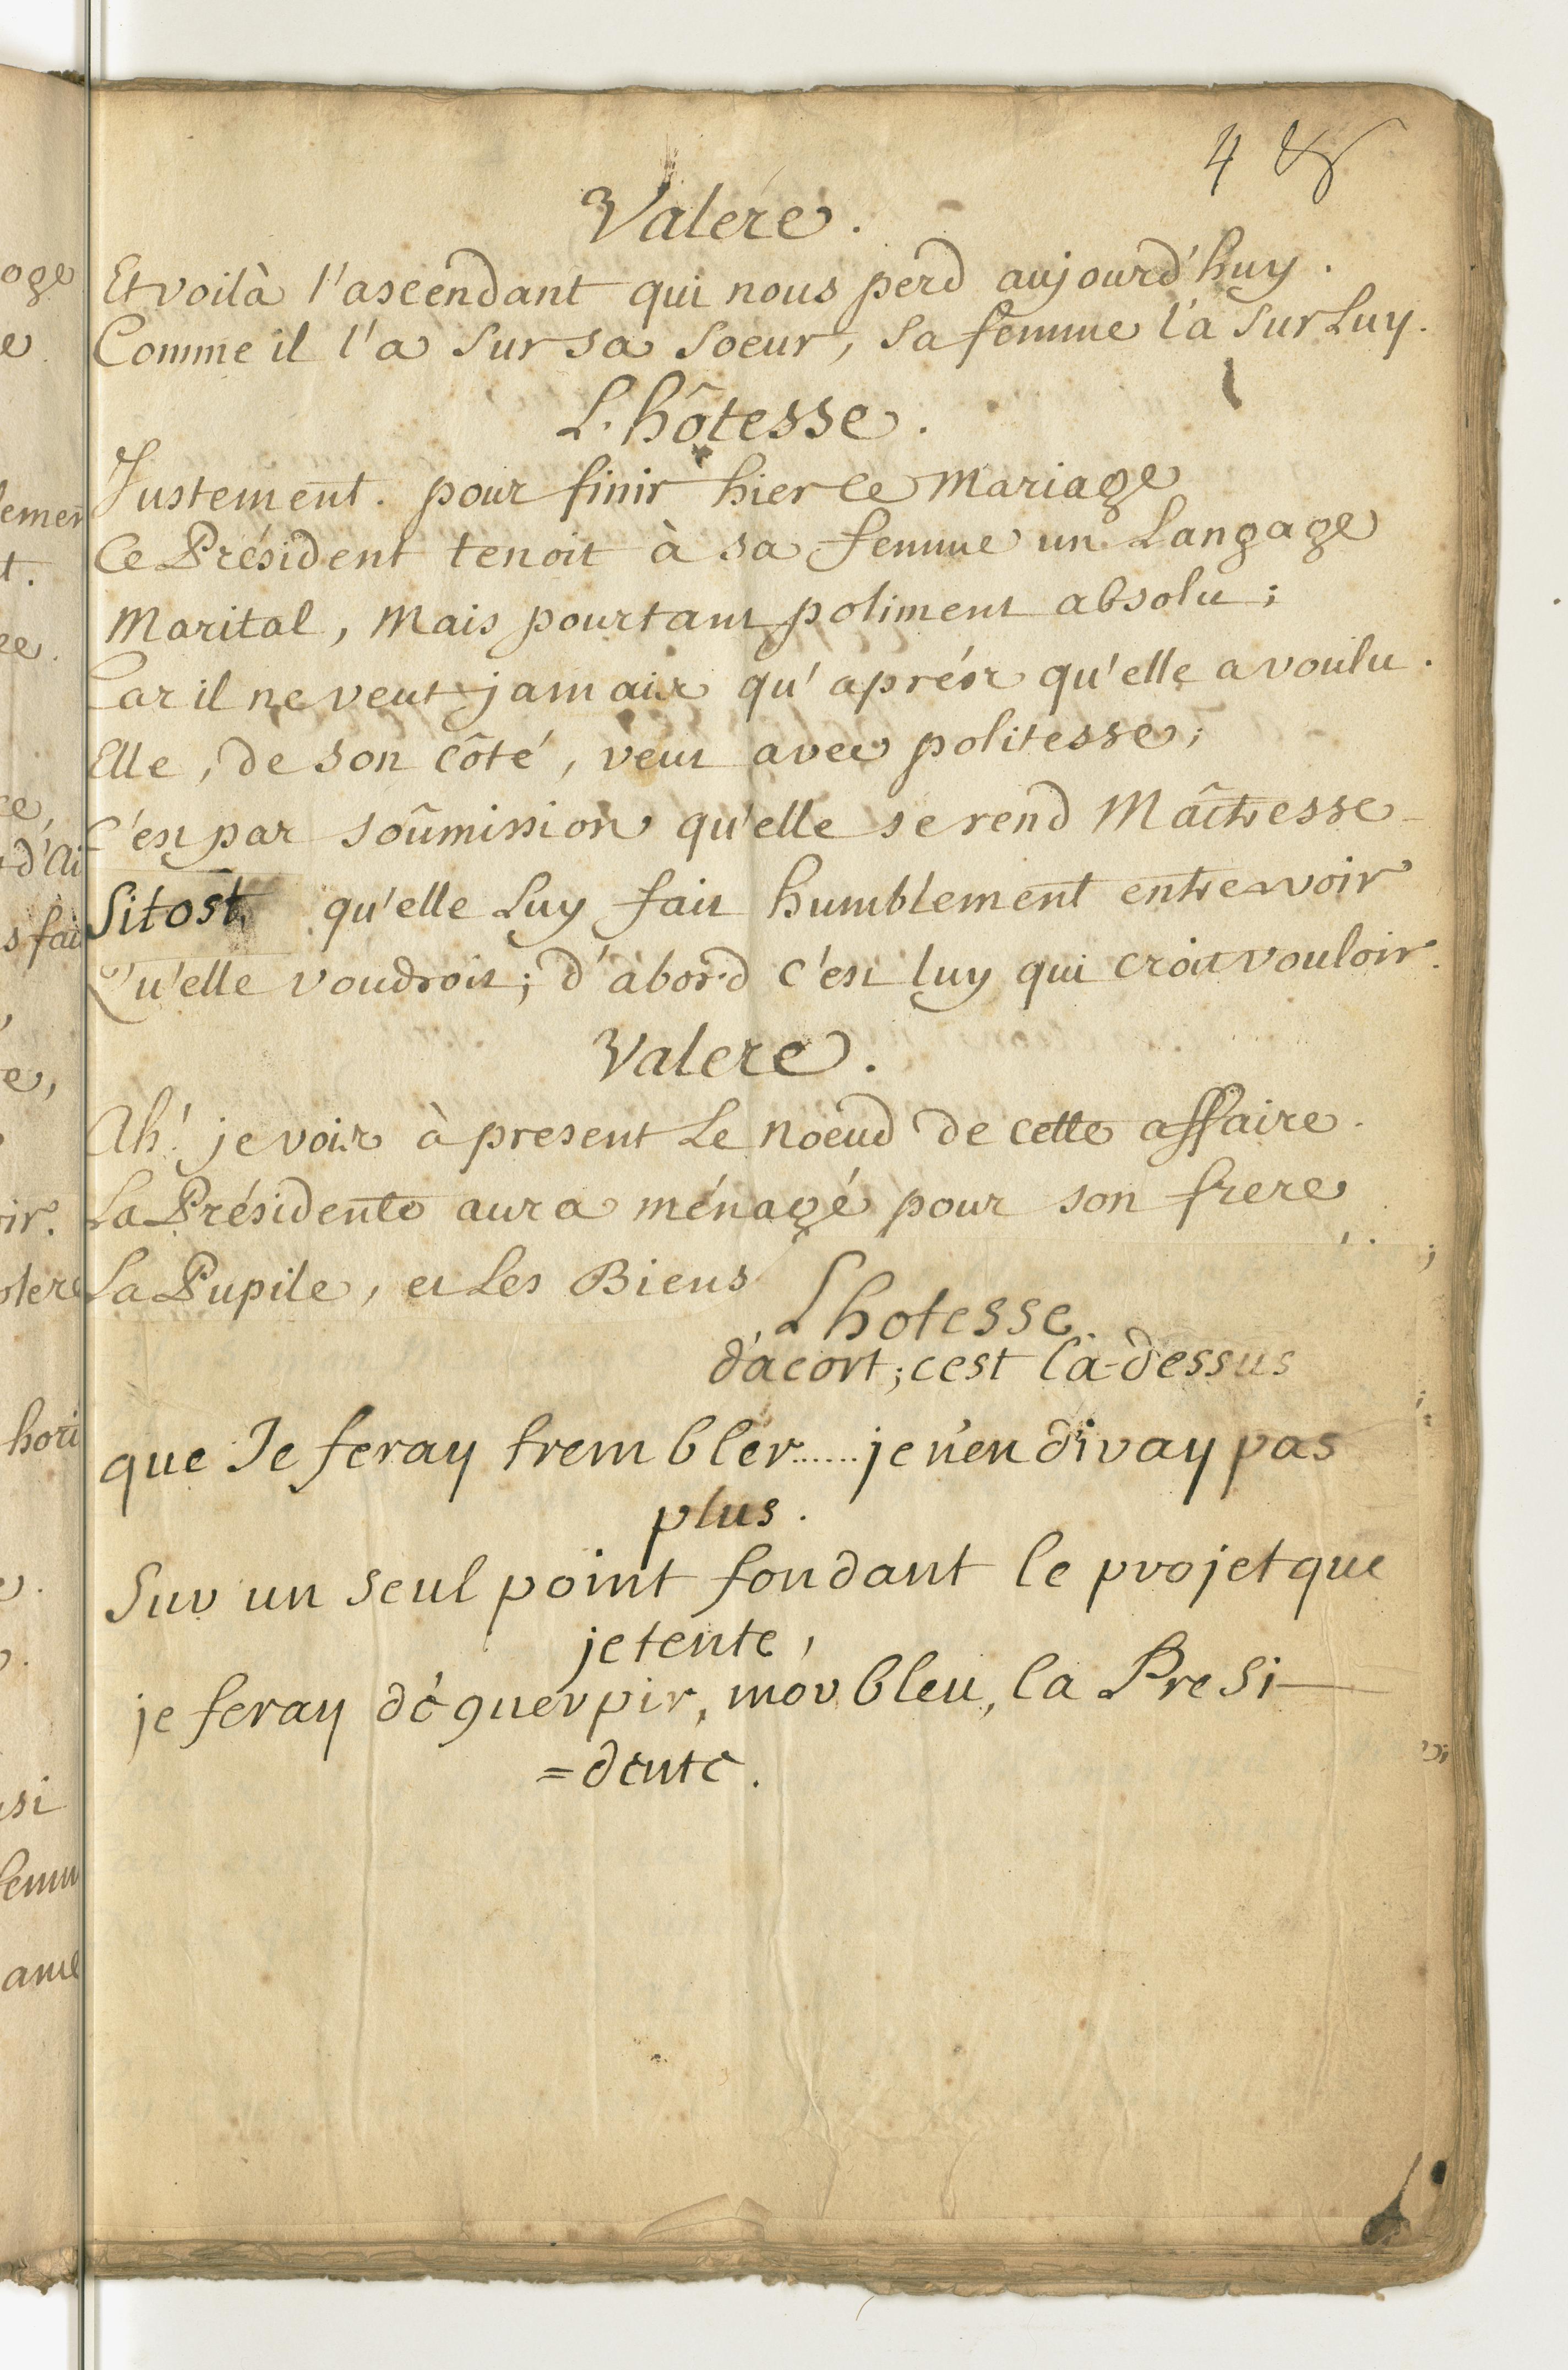 4
Valere.
Et voilà l'ascendant qui nous perd aujourd'huy.
Comme il l'a sur sa soeur, sa femme l'a sur Luy.
L'hôtesse.
Justement. pour finir hier ce Mariage
Ce Président tenoit à sa femme un Langage
Marital, Mais pourtant poliment absolu;
Car il ne veut jamais qu'aprés qu'elle a voulu.
Elle, de son côté, veut avec politesse;
C'est par soûmission qu'elle se rend Maîtresse
Sitost qu'elle Luy fait humblement entrevoir
Qu'elle voudroit; d'abord c'est luy qui croit vouloir.
Valere.
Ah! je vois à present Le noeud de cette affaire.
La Présidente aura ménagé pour son frere
La Pupile, et Les Biens
Lhotesse.
d'acort; cest la-dessus
que Je feray trembler......je n'en diray pas
plus.
Sur un seul point fondant le projet que
je tente,
je feray déguerpir, morbleu, la Presi-
=dente.